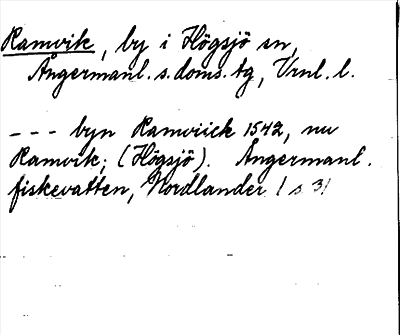 Ramvik, by i Högsjö sn,
Ångermanl. s. doms. tg, Vrnl. l.
--- byn Ramviick 1542, nu
Ramvik; (Högsjö). Ångermanl.
fiskevatten, Nordlander 1 s 31